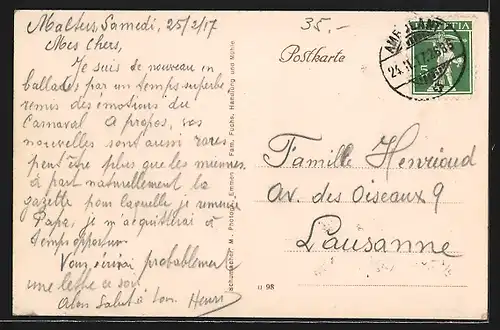 Malters, Samedi, 25/2/17
35.-
Mes chers,
Postkarte
HELVETIA
5
Je suis de nouveau en
ballades par un temps superbe
remis des émotions du
Carnaval A propos, vos
nouvelles sont aussi rares
peut être plus que les miennes
à part naturellement la
gazette pour laquelle je remercie
Papa, je m'acquitterai à
temps opportun.
Vous écrirai probablement
une lettre ce soir
Alors Salut à tous Henri
Schumacher, M. Photogr. Emmen
Fam. Fuchs, Handlung und Mühle
G 98
Famille Henrioud
Av. des Oiseaux 9
Lausanne